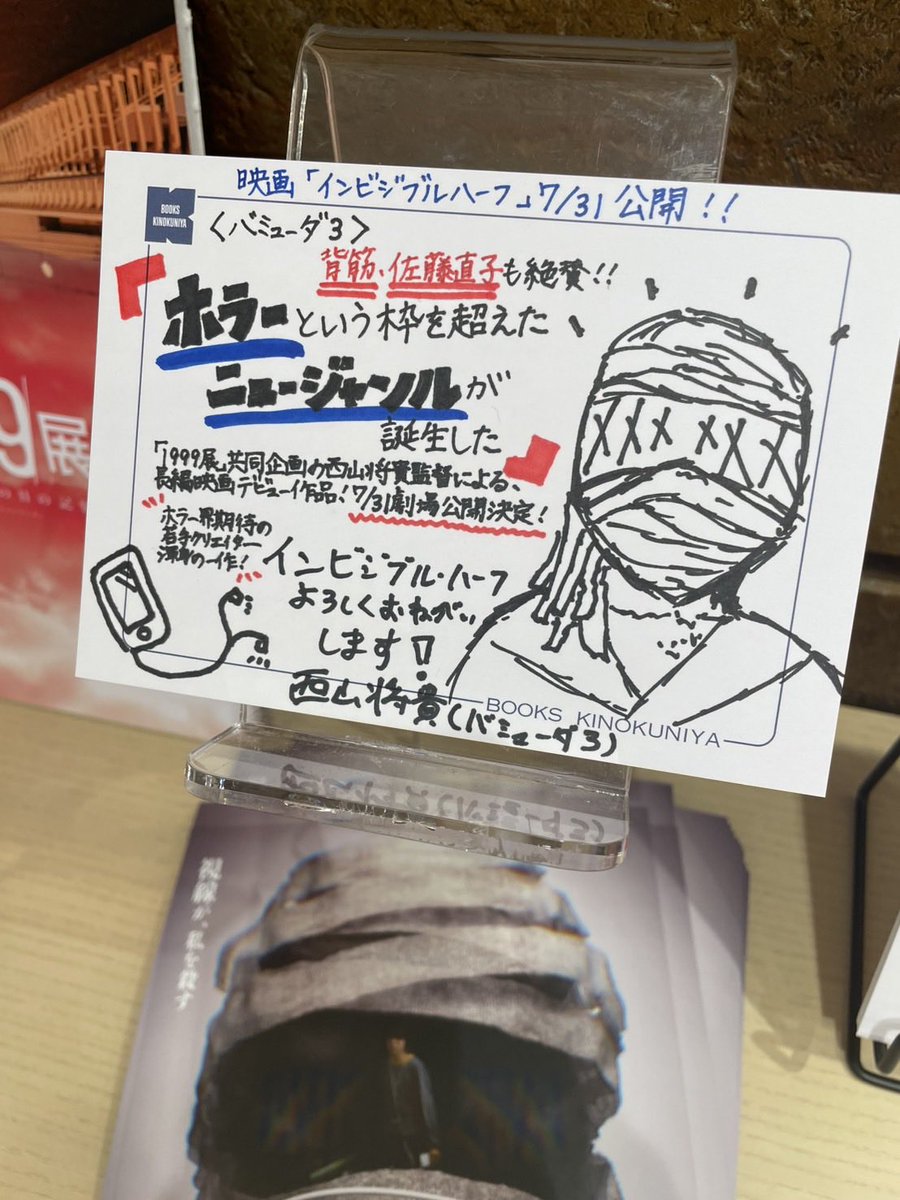 映画「インビジブルハーフ」7/31公開!!
BOOKS
KINOKUNIYA
<バミューダ3>
背筋、佐藤直子も絶賛!!
「ホラーという枠を超えた
ニュージャンルが
誕生した」
「1999展」共同企画の西山将貴監督による、
長編映画デビュー作品!7/31劇場公開決定!
ホラー界期待の
若手クリエイター
渾身の一作!
インビジブル・ハーフ
よろしくおねがい
します!
西山将貴(バミューダ3)
BOOKS KINOKUNIYA
9展
視線が、私を殺す